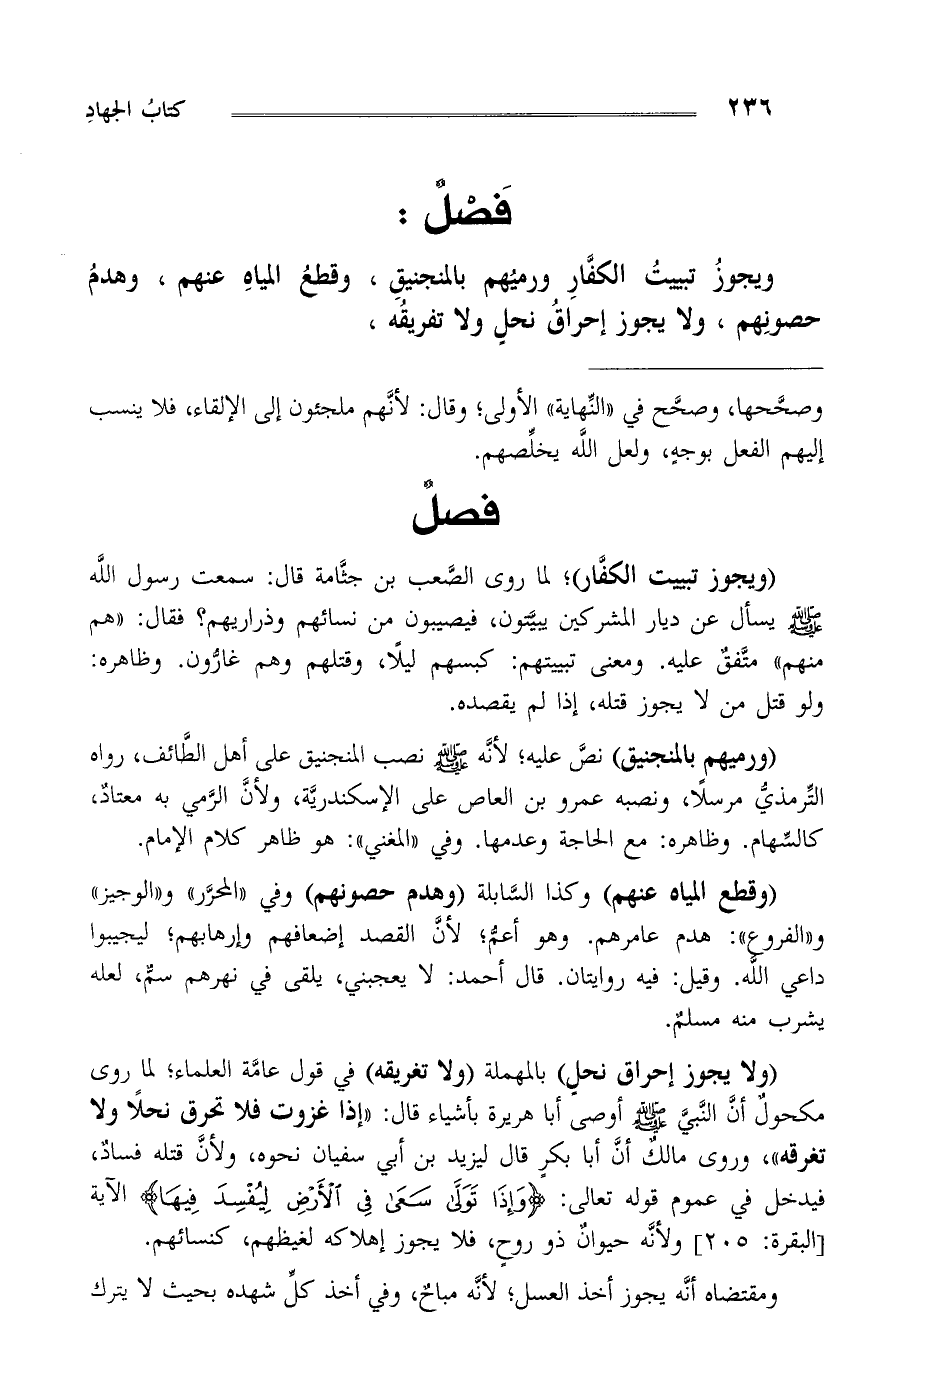 ٢٣٦ كتابُ الجهادِ
فَصْلٌ :
ويجوزُ تبييتُ الكفَّارِ ورميُهم بالمنجنيقِ ، وقطعُ المياهِ عنهم ، وهدمُ
حصونِهم ، ولا يجوز إحراقُ نحلٍ ولا تفريقُه ،
وصحَّحها، وصحَّح في «النِّهاية» الأولى؛ وقال: لأنَّهم ملجئون إلى الإلقاء، فلا ينسب
إليهم الفعل بوجهٍ، ولعل اللَّه يخلِّصهم.
فصلٌ
(ويجوز تبييت الكفَّار)؛ لما روى الصَّعب بن جثَّامة قال: سمعت رسول اللَّه
ﷺ يسأل عن ديار المشركين يبيَّتون، فيصيبون من نسائهم وذراريهم؟ فقال: «هم
منهم» متَّفقٌ عليه. ومعنى تبييتهم: كبسهم ليلًا، وقتلهم وهم غارُّون. وظاهره:
ولو قتل من لا يجوز قتله، إذا لم يقصده.
(ورميهم بالمنجنيق) نصَّ عليه؛ لأنَّه ﷺ نصب المنجنيق على أهل الطَّائف، رواه
التِّرمذيُّ مرسلًا، ونصبه عمرو بن العاص على الإسكندريَّة، ولأنَّ الرَّمي به معتادٌ،
كالسِّهام. وظاهره: مع الحاجة وعدمها. وفي «المغني»: هو ظاهر كلام الإمام.
(وقطع المياه عنهم) وكذا السَّابلة (وهدم حصونهم) وفي «المحرَّر» و«الوجيز»
و«الفروع»: هدم عامرهم. وهو أعمُّ؛ لأنَّ القصد إضعافهم وإرهابهم؛ ليجيبوا
داعي اللَّه. وقيل: فيه روايتان. قال أحمد: لا يعجبني، يلقى في نهرهم سمٌّ، لعله
يشرب منه مسلمٌ.
(ولا يجوز إحراق نحلٍ) بالمهملة (ولا تغريقه) في قول عامَّة العلماء؛ لما روى
مكحولٌ أنَّ النَّبيَّ ﷺ أوصى أبا هريرة بأشياء قال: «إذا غزوت فلا تحرق نحلًا ولا
تغرقه»، وروى مالكٌ أنَّ أبا بكرٍ قال ليزيد بن أبي سفيان نحوه، ولأنَّ قتله فسادٌ،
فيدخل في عموم قوله تعالى: ﴿وَإِذَا تَوَلَّىٰ سَعَىٰ فِي ٱلْأَرْضِ لِيُفْسِدَ فِيهَا﴾ الآية
[البقرة: ٢٠٥] ولأنَّه حيوانٌ ذو روحٍ، فلا يجوز إهلاكه لغيظهم، كنسائهم.
ومقتضاه أنَّه يجوز أخذ العسل؛ لأنَّه مباحٌ، وفي أخذ كلِّ شهده بحيث لا يترك